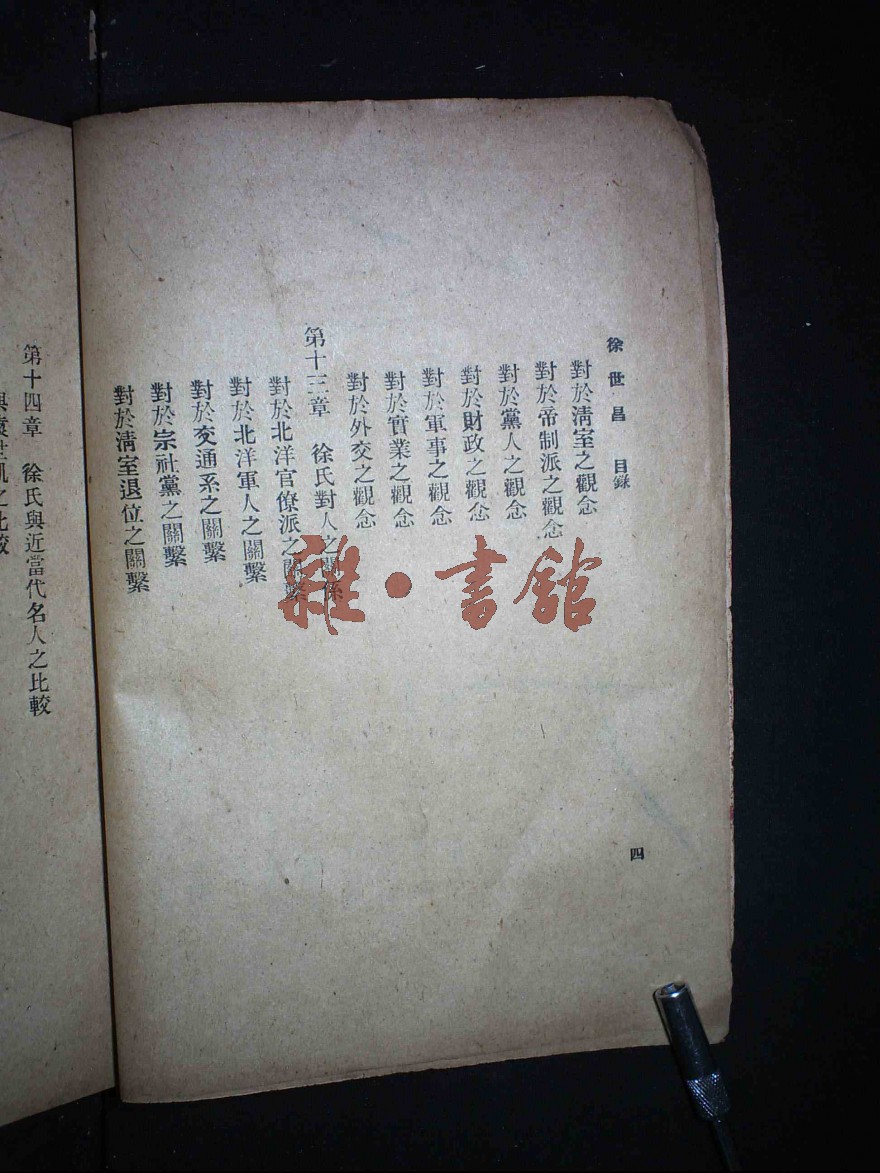 徐世昌 目錄
對於淸室之觀念
對於帝制派之觀念
對於黨人之觀念
對於財政之觀念
對於軍事之觀念
對於實業之觀念
對於外交之觀念
第十三章 徐氏對人之關係
對於北洋官僚派之關繫
對於北洋軍人之關繫
對於交通系之關繫
對於宗社黨之關繫
對於淸室退位之關繫
四
第十四章 徐氏與近當代名人之比較
與袁世凱之比較
雜·書館